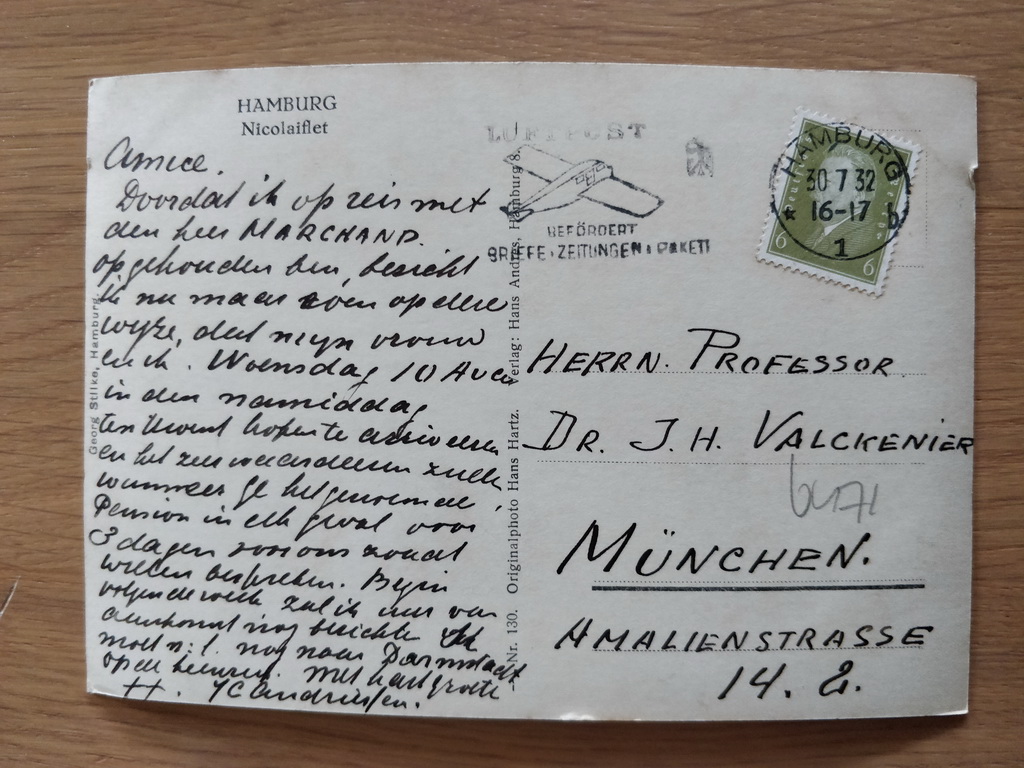 HAMBURG
Nicolaiflet
Amice.
Doordat ik op reis met
den heer MARCHAND.
opgehouden ben, bericht
ik nu maar even op deze
wijze, dat mijn vrouw
en ik. Woensdag 10 Aug
in den namiddag
ten Uwent hopen te arriveeren
en het zeer waardeeren zullen
wanneer ge het genoemde
Pension in elk geval voor
3 dagen voor ons zoudt
willen bespreken. Begin
volgende week zal ik uur van
aankomst nog berichten. Ik
moet n.l. nog naar Darmstadt
op de heenreis. Met hart. groete
tt. JC Andriessen.
Georg Stilke, Hamburg.
Nr. 130. Originalphoto Hans Hartz. Verlag: Hans Andres, Hamburg 8.
LUFTPOST
BEFÖRDERT
BRIEFE · ZEITUNGEN · PAKETE
HAMBURG
30 7 32
16-17
* b
1
6 6
HERRN. PROFESSOR
DR. J. H. VALCKENIER
MÜNCHEN.
AMALIENSTRASSE
14. 2.